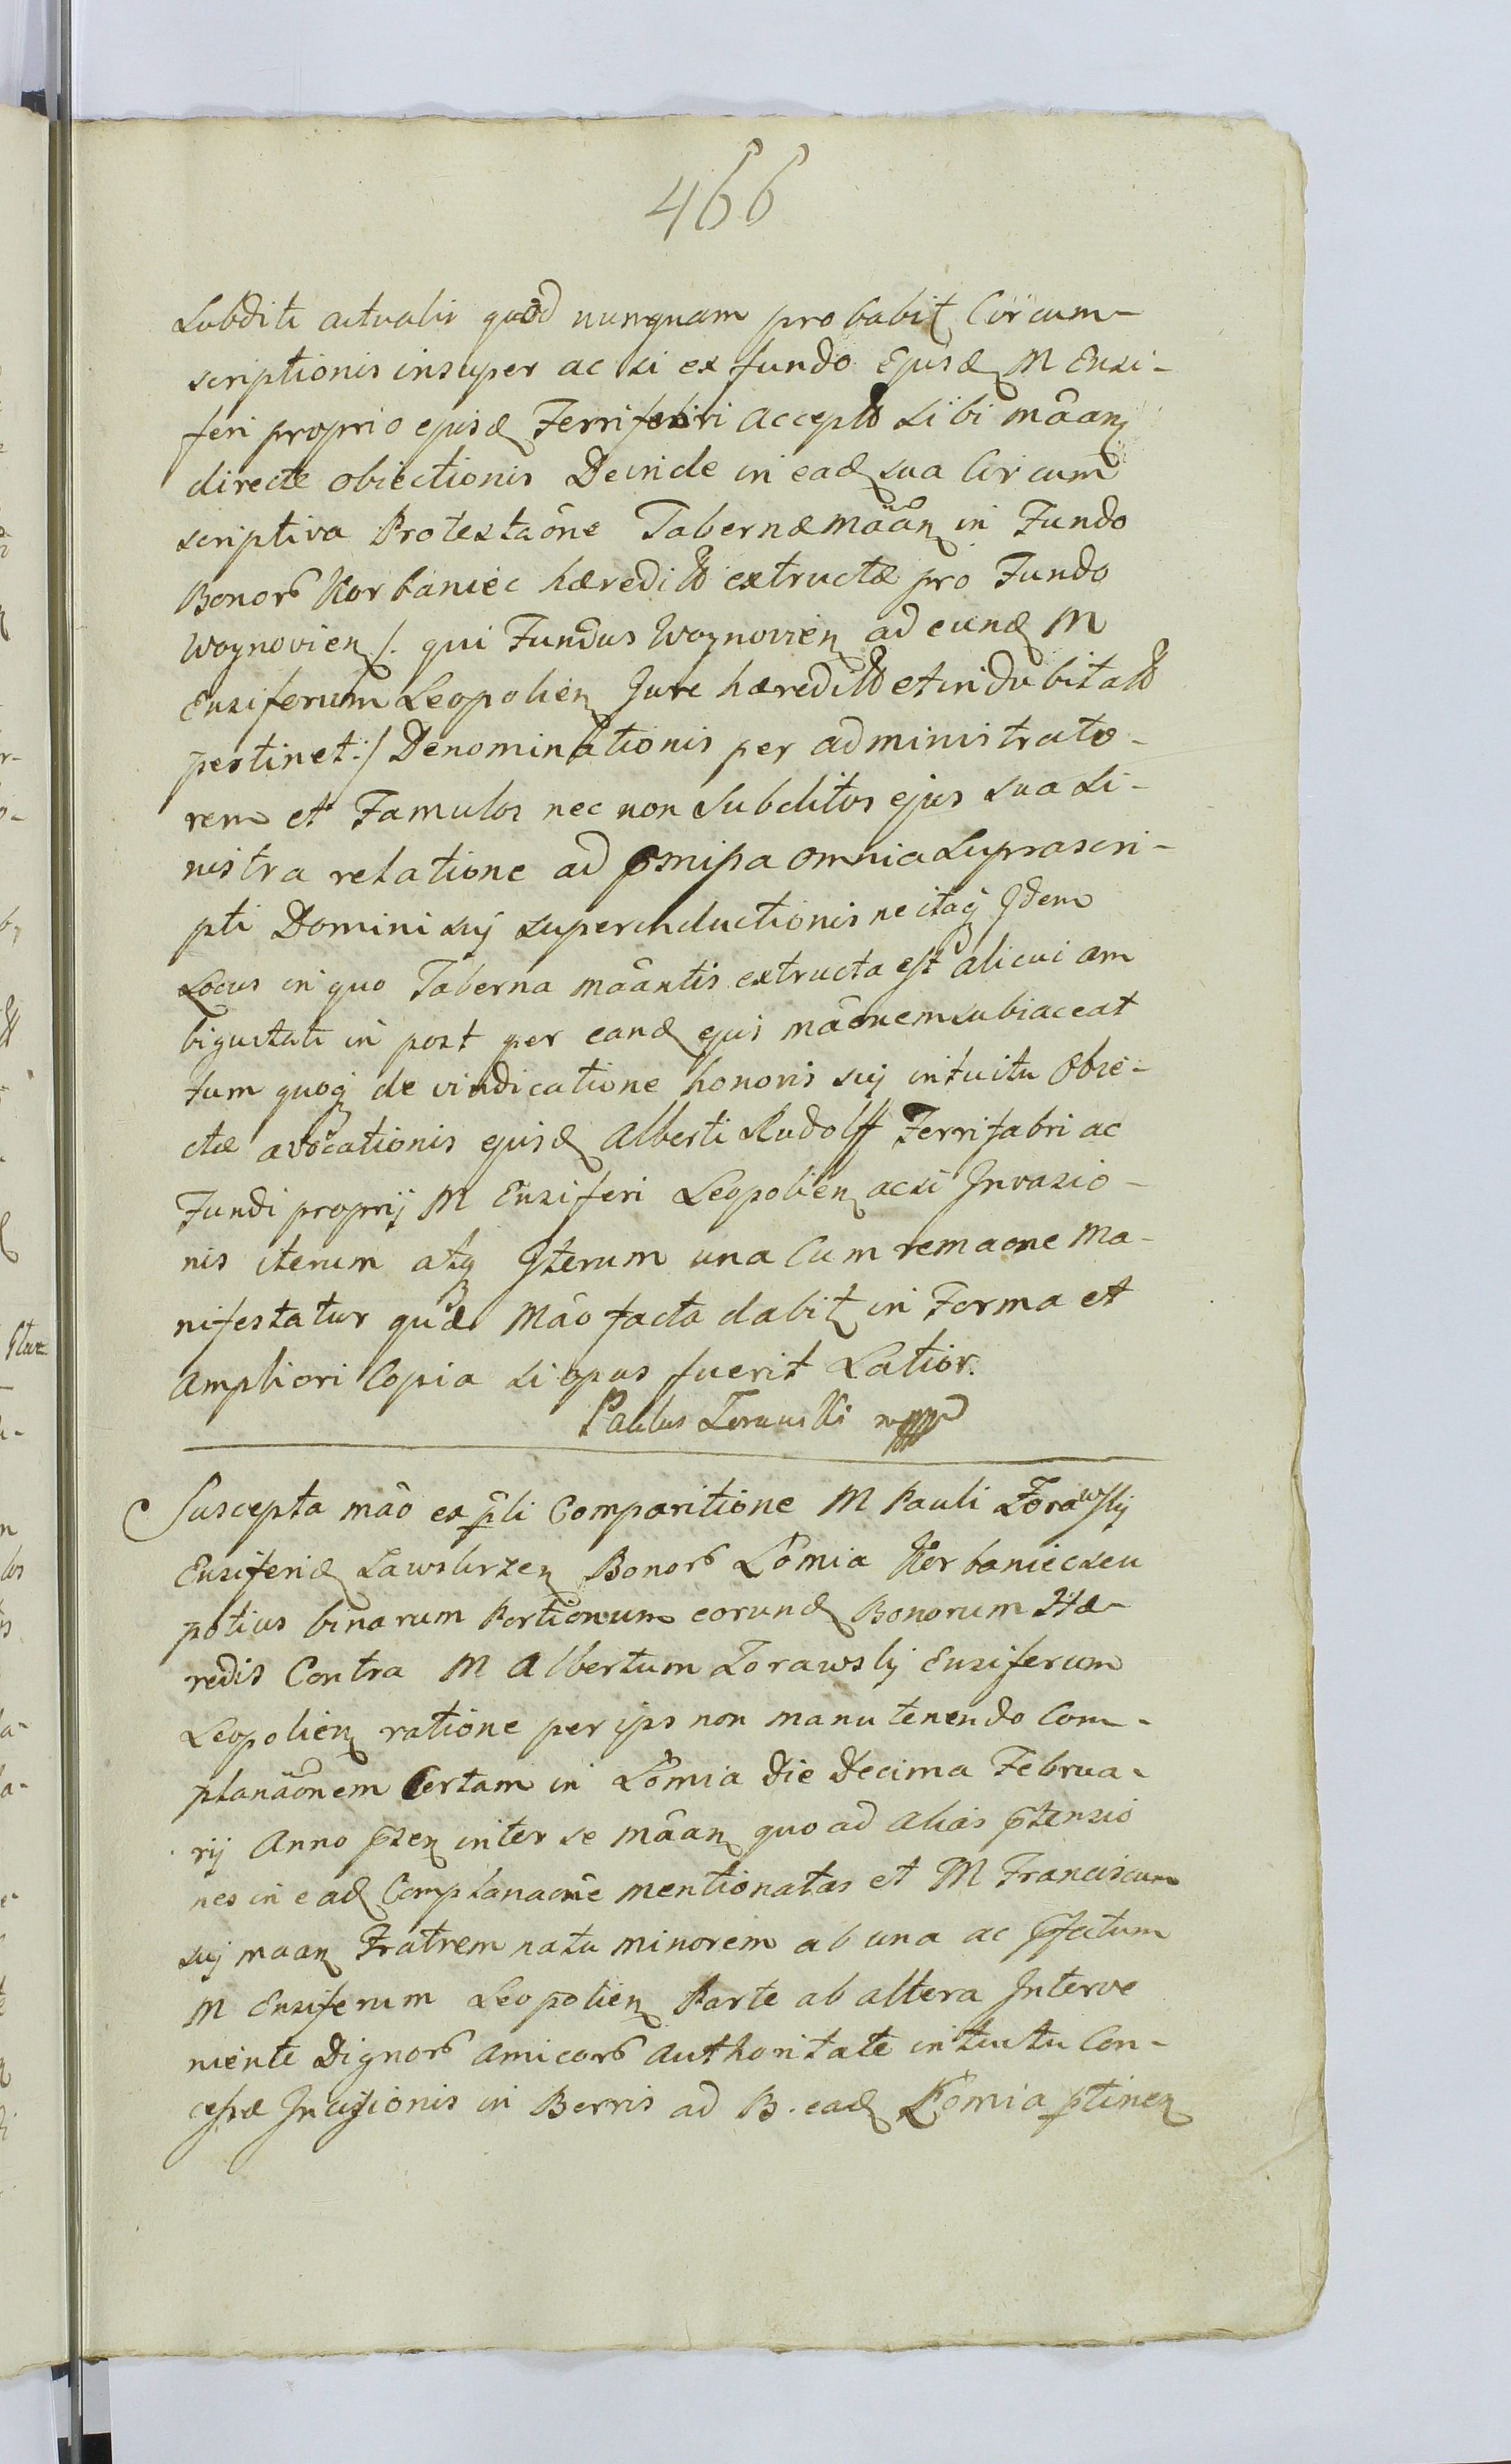 466
Subditi actualis quod nunquam probabit Circum-
scriptionis insuper ac si ex fundo Ejusd M Ensi-
feri proprio ejusd Ferrifabri accepto sibi mâan
directe obiectionis Deinde in ead sua Circum
scriptiva Protestaône Tabernæ mâân in Fundo
Bonor Korbaniec hæredit extructæ pro Fundo
Woynovien /. qui Fundus Woynovien ad eund M
Ensiferum Leopolien Jure hæredit et indubitato
pertinet ./ Denominationis per administrato-
rem et Famulos nec non Subditos ejus sua si-
nistra relatione ad omnia Suprascri-
pti Domini sui superinductionis ne itaq Idem
Locus in quo Taberna mâantis extructa est alicui am
biguitati in post per eand ejus mâonem subiaceat
tum quoq de vindicatione honoris sui intuitu Obie-
ctæ avocationis ejusd Alberti Rudolff Ferrifabri ac
Fundi proprij M Ensiferi Leopolien acsi Invasio-
nis iterum atq Iterum una Cum remaone Ma-
nifestatur quæ Mâo facta dabit in Forma et
Ampliori Copia si opus fuerit Latior.
Paulus Zorawski mpp
Suscepta mâo ex pli Comparitione M Pauli Zorawskij
Ensiferid Bonor Łomia Korbaniec seu
potius binarum Portionum eorund Bonorum Hæ-
redis Contra M Albertum Zorawskj Ensiferum
Leopolien ratione per ips non manutenendo Com-
planâonem Certam in Łomia die Decima Februa-
rij Anno psen inter se mâan quo ad alias ptensio
nes in ead Complanaône mentionatas et M Franciscum
sui maan Fratrem natu minorem ab una ac pfatum
M Ensiferum Leopolien Parte ab altera Interve
niente Dignor Amicor Authoritate intuitu Con-
cessæ Incisionis in Borris ad B. ead Łomia ptinen